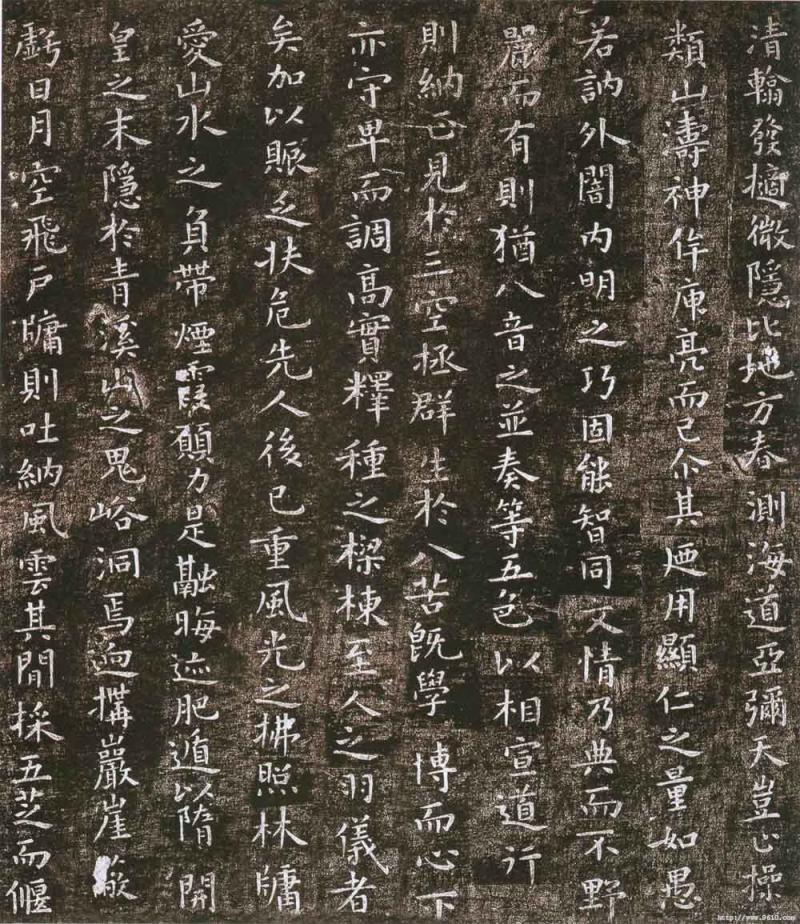 清翰發擿微隱比地方春測海道亞彌天豈止操
類山濤神侔庾亮而已尒其迺用顯仁之量如愚
若訥外闇內明之巧固能智同文情乃典而不野
麗而有則猶八音之並奏等五色以相宣道行
則納正見於三空拯群生於八苦旣學博而心下
亦守卑而調高實釋種之樑棟至人之羽儀者
矣加以賑乏扶危先人後已重風光之拂照林牖
愛山水之負帶煙霞願力是融晦迹肥遁以隋開
皇之末隱於青溪山之鬼峪洞焉迥構巖崖蔽
虧日月空飛戶牖則吐納風雲其間採五芝而偃
http://www.9610.com